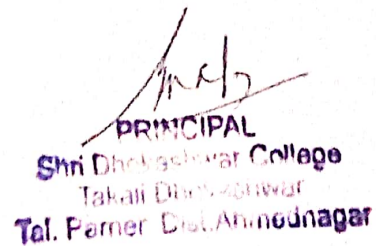 PRINCIPAL
Shri Dhokeshwar College
Takali Dhokeshwar
Tal. Parner Dist.Ahmednagar